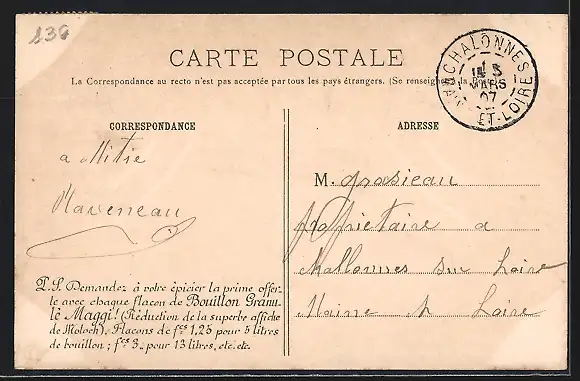 836
CARTE POSTALE
La Correspondance au recto n'est pas acceptée par tous les pays étrangers. (Se renseigner à la Poste)
CHALONNES
MARS
07
ET-LOIRE
CORRESPONDANCE
ADRESSE
a
Raveneau
M. grosieau
propriétaire a
challonnes sur loire
Maine & Loire
P.S. Demandez à votre épicier la prime offer-
te avec chaque flacon de Bouillon Granu-
lé Maggi! (Réduction de la superbe affiche
de Moloch). Flacons de fcs 1,25 pour 5 litres
de bouillon; fcs 3_ pour 13 litres, etc. etc.